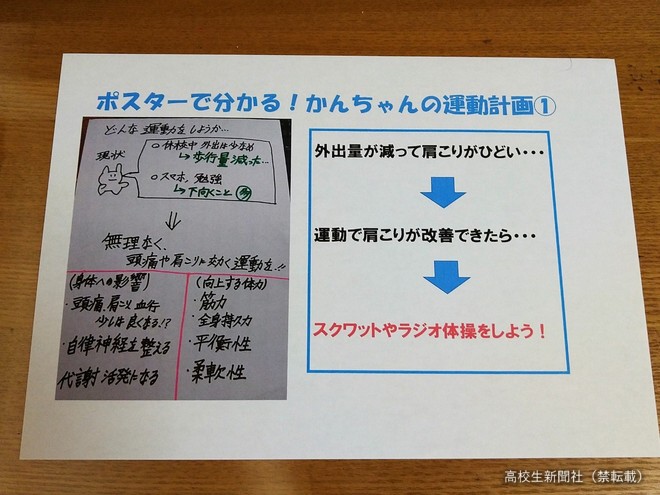 ポスターで分かる！かんちゃんの運動計画①
どんな運動をしようか…
現状
○休校中 外出は少なめ
↳歩行量減った…
○スマホ、勉強
↳下向くこと 多
無理なく、
頭痛や肩こりに効く運動を..!!
(身体への影響)
・頭痛、肩こり、血行
少しは良くなる!?
・自律神経を整える
代謝活発になる
(向上する体力)
・筋力
・全身持久力
・平衡性
・柔軟性
外出量が減って肩こりがひどい・・・
運動で肩こりが改善できたら・・・
スクワットやラジオ体操をしよう！
高校生新聞社（禁転載）